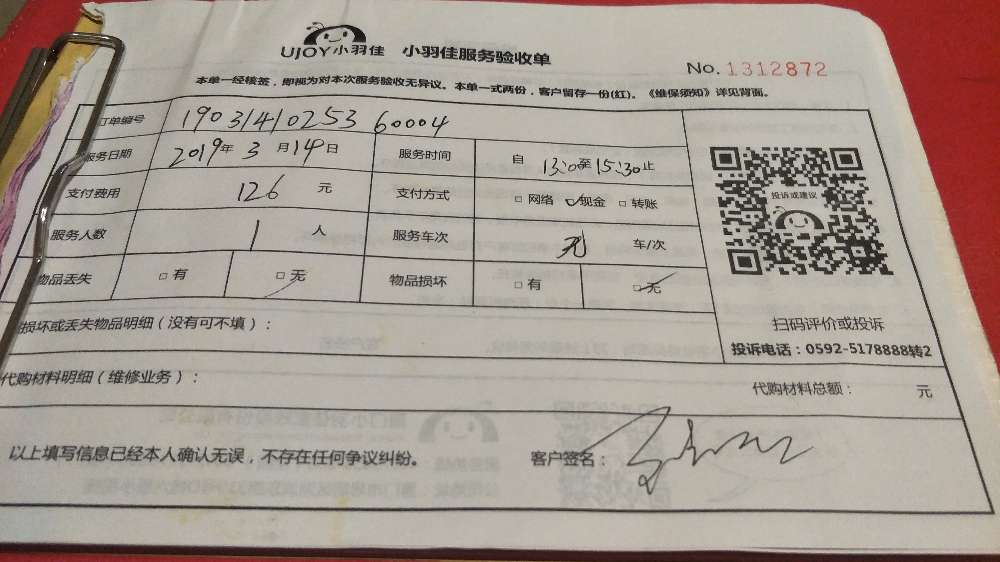 UJOY小羽佳 小羽佳服务验收单
No. 1312872
本单一经核签，即视为对本次服务验收无异议。本单一式两份，客户留存一份(红)。《维保须知》详见背面。
订单编号 19031410253 60004
服务日期 2019年3月14日 服务时间 自13:30至15:30止
支付费用 126元 支付方式 □网络 ☑现金 □转账
服务人数 1人 服务车次 无 车/次
物品丢失 □有 ☑无 物品损坏 □有 ☑无
投诉或建议
扫码评价或投诉
投诉电话：0592-5178888转2
损坏或丢失物品明细（没有可不填）：
代购材料明细（维修业务）： 代购材料总额： 元
以上填写信息已经本人确认无误，不存在任何争议纠纷。 客户签名：